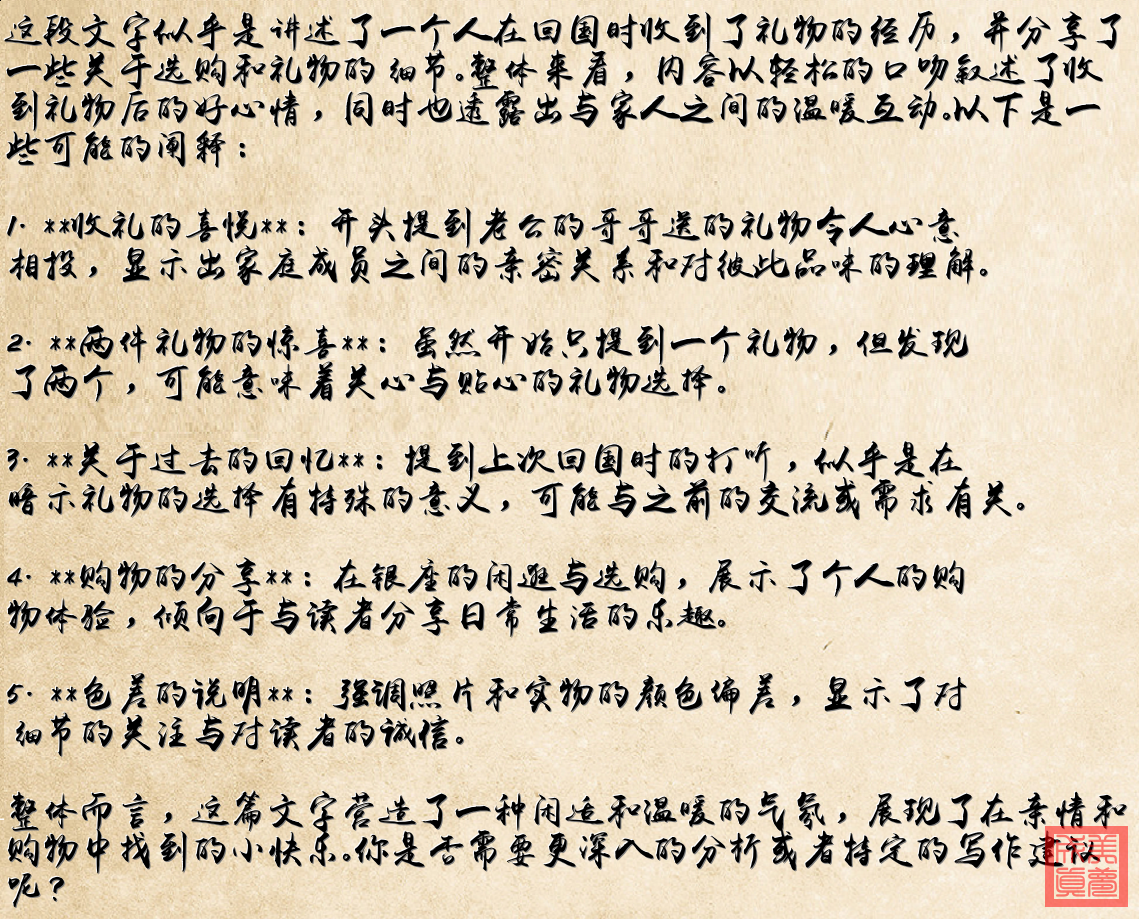 这段文字似乎是讲述了一个人在回国时收到了礼物的经历，并分享了
一些关于选购和礼物的细节。整体来看，内容以轻松的口吻叙述了收
到礼物后的好心情，同时也透露出与家人之间的温暖互动。以下是一
些可能的阐释：
1. **收礼的喜悦**：开头提到老公的哥哥送的礼物令人心意
相投，显示出家庭成员之间的亲密关系和对彼此品味的理解。
2. **两件礼物的惊喜**：虽然开始只提到一个礼物，但发现
了两个，可能意味着关心与贴心的礼物选择。
3. **关于过去的回忆**：提到上次回国时的打听，似乎是在
暗示礼物的选择有特殊的意义，可能与之前的交流或需求有关。
4. **购物的分享**：在银座的闲逛与选购，展示了个人的购
物体验，倾向于与读者分享日常生活的乐趣。
5. **色差的说明**：强调照片和实物的颜色偏差，显示了对
细节的关注与对读者的诚信。
整体而言，这篇文字营造了一种闲适和温暖的气氛，展现了在亲情和
购物中找到的小快乐。你是否需要更深入的分析或者特定的写作建议
呢？